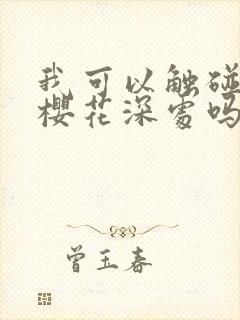 我可以触碰
樱花深处吗
曾玉春